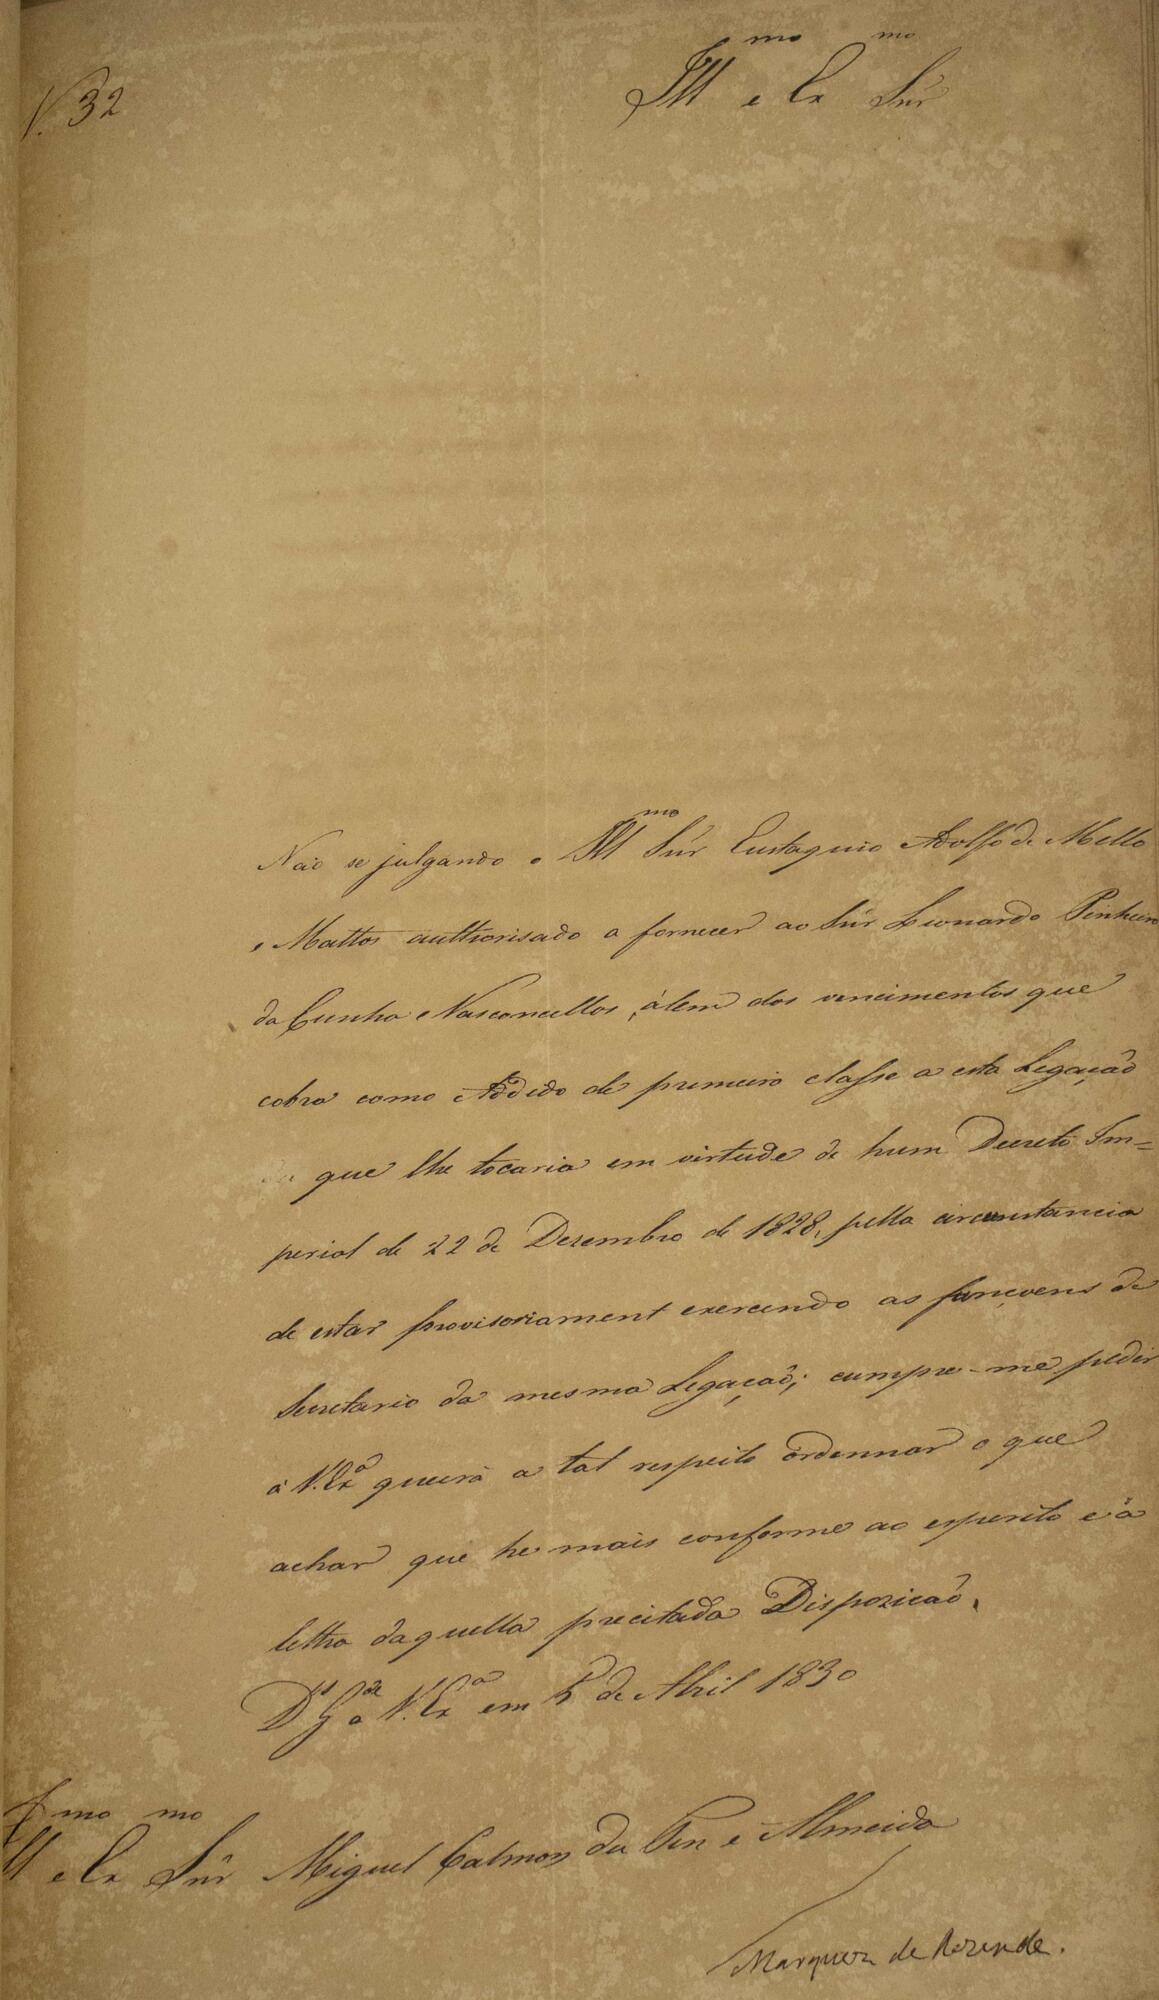 N. 32
Ill.mo e Ex.mo Snr
Não se julgando o Ill.mo Snr Eustaquio Adolfo de Mello
e Mattos authorisado a fornecer ao Snr Leonardo Pinheiro
da Cunha e Vasconcellos, álem dos vencimentos que
cobra como Addido de primeira classe a esta Legação
que lhe tocaria em virtude de hum Decreto Im=
perial de 22 de Dezembro de 1828, pella circunstancia
de estar provisoriament exercendo as funçoens de
Secretario da mesma Legação; cumpre-me pedir
á V. Ex.a queira a tal respeito ordennar o que
achar que he mais conforme ao esperito e á
lettra daquella precitada Dispozicaõ.
D.s G.de a V. Ex.a em 5 de Abril 1830
Ill.mo e Ex.mo Snr Miguel Calmon du Pin e Almeida
Marquez de Rezende.